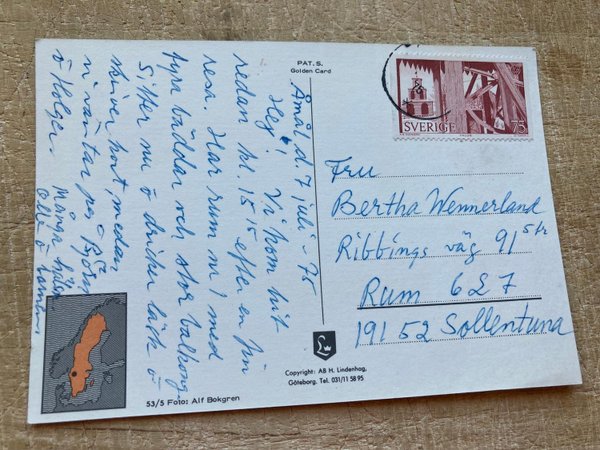 PAT. S.
Golden Card
Åmål d 7 juli - 75
Hej! Vi kom hit
redan kl. 15.15 efter en fin
resa. Har rum nr 1 med
fyra bäddar och stor balkong.
Sitter nu o dricker läsk o
skriver kort, medan
vi väntar på Björn
o Holger.
Många
Olle o
SVERIGE 75
Fru
Bertha Wennerland
Ribbings väg 91 5tr
Rum 627
191 52 Sollentuna
Copyright: AB H. Lindenhag,
Göteborg, Tel. 031/11 58 95
53/5 Foto: Alf Bokgren